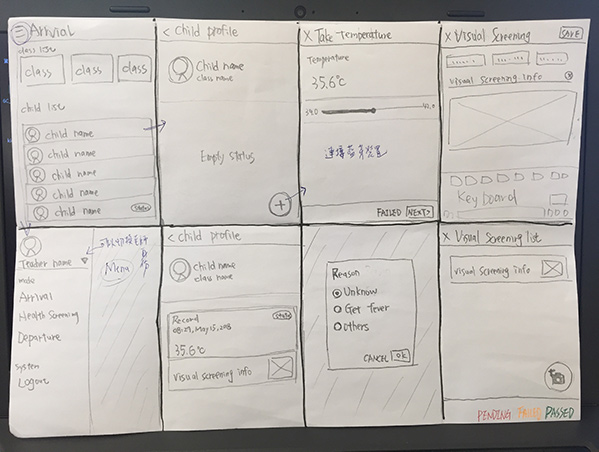 Arrival
class list
class
class
class
child list
child name
child name
child name
child name
child name
state
< Child profile
Child name
class name
Empty status
+
X Take-Temperature
Temperature
35.6℃
34.0
42.0
FAILED
NEXT>
X Visual Screening
SAVE
visual screening info
Keyboard
Teacher name
Menu
mode
Arrival
Health Screening
Departure
System
Logout
< Child profile
child name
class name
Record
state
08:29, May 15, 2018
35.6℃
visual screening info
Reason
Unknow
Get fever
Others
CANCEL
OK
X Visual Screening list
visual screening info
PENDING FAILED PASSED